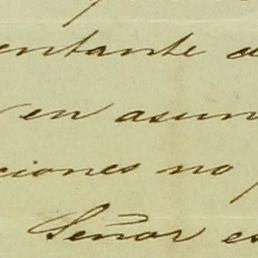 entante
en asun
ciones no
Señor es